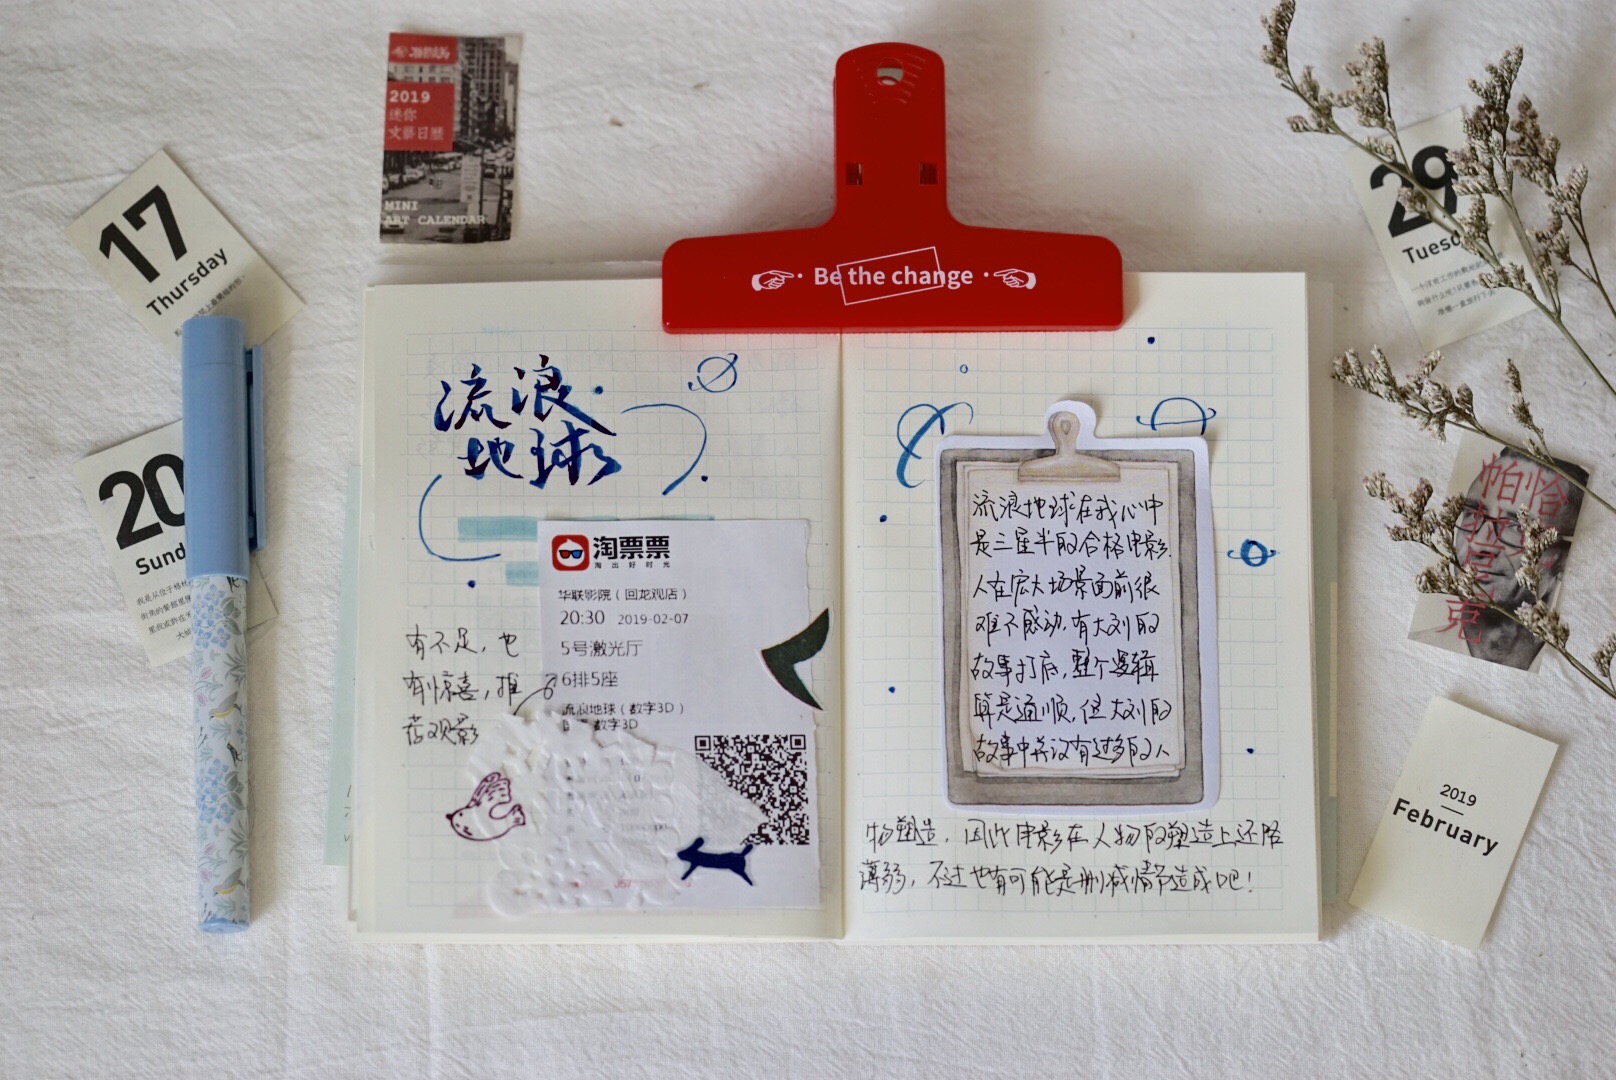 2019
迷你
文艺日历
MINI
ART CALENDAR
17
Thursday
20
Sund
29
Tuesd
Be the change
流浪
地球
淘票票
淘出好时光
华联影院（回龙观店）
20:30 2019-02-07
5号激光厅
6排5座
流浪地球（数字3D）
数字3D
有不足，也
有惊喜，推
荐观影
流浪地球在我心中
是三星半的合格电影.
人在宏大场景面前很
难不感动，有大刘的
故事打底，整个逻辑
算是通顺，但大刘的
故事中并没有过多的人
物塑造，因此电影在人物的塑造上还略
薄弱，不过也有可能是删减情节造成吧！
帕恰
拉
克
2019
February